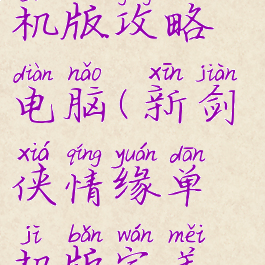 机版攻略
diàn nǎo xīn jiàn
电脑(新剑
xiá qíng yuán dān
侠情缘单
jī bǎn wán měi
机版完美